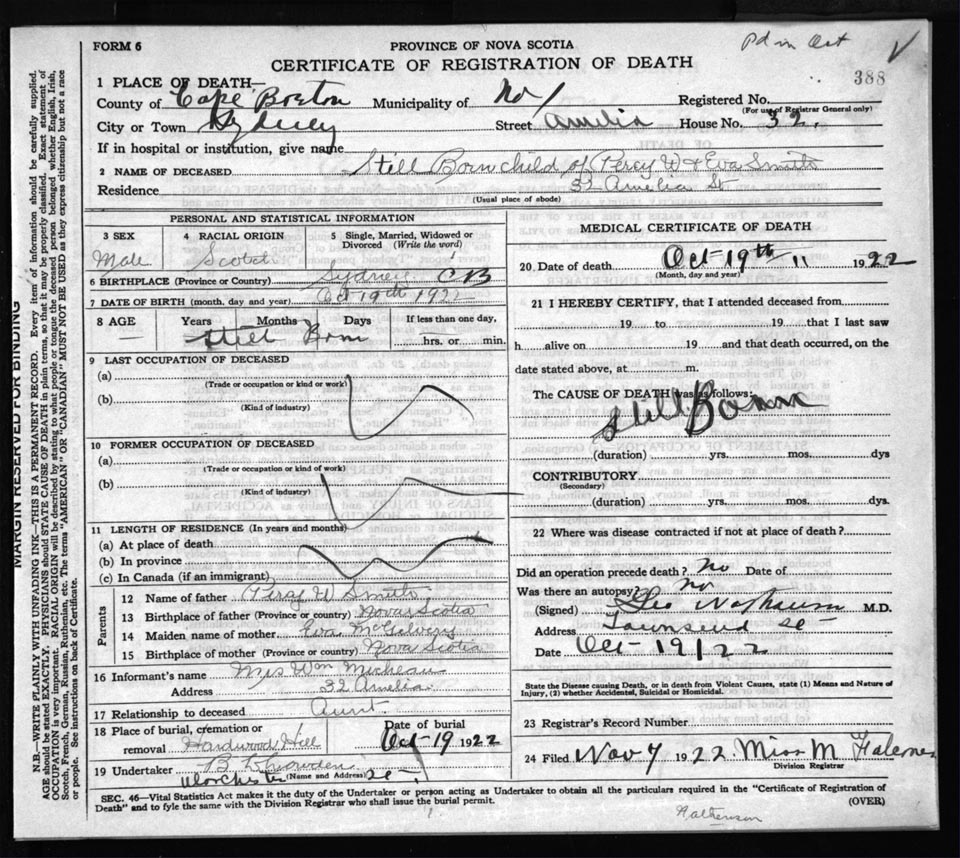 Pd in Oct
FORM 6
PROVINCE OF NOVA SCOTIA
CERTIFICATE OF REGISTRATION OF DEATH
388
1 PLACE OF DEATH—
County of Cape Breton Municipality of No 1 Registered No.
(For use of Registrar General only)
City or Town Sydney Street Amelia House No. 32.
If in hospital or institution, give name
2 NAME OF DECEASED Still Born child of Percy W & Eva Smith
Residence 32 Amelia St
(Usual place of abode)
PERSONAL AND STATISTICAL INFORMATION
3 SEX 4 RACIAL ORIGIN 5 Single, Married, Widowed or Divorced (Write the word)
Male Scotch
6 BIRTHPLACE (Province or Country) Sydney CB
7 DATE OF BIRTH (month, day and year) Oct 19th 1922
8 AGE Years Months Days If less than one day,
Still Born hrs. or min.
9 LAST OCCUPATION OF DECEASED
(a)
(Trade or occupation or kind or work)
(b)
(Kind of industry)
10 FORMER OCCUPATION OF DECEASED
(a)
(Trade or occupation or kind of work)
(b)
(Kind of industry)
11 LENGTH OF RESIDENCE (In years and months)
(a) At place of death
(b) In province
(c) In Canada (if an immigrant)
Parents
12 Name of father Percy W Smith
13 Birthplace of father (Province or country) Nova Scotia
14 Maiden name of mother Eva McGilvery
15 Birthplace of mother (Province or country) Nova Scotia
16 Informant's name Mrs Wm Micheau
Address 32 Amelia
17 Relationship to deceased Aunt
18 Place of burial, cremation or removal Hardwood Hill Date of burial Oct 19 1922
19 Undertaker
Dorchester St
(Name and Address)
MEDICAL CERTIFICATE OF DEATH
20. Date of death Oct 19th 11 1922
(Month, day and year)
21 I HEREBY CERTIFY, that I attended deceased from
19 to 19 that I last saw
h alive on 19 and that death occurred, on the
date stated above, at m.
The CAUSE OF DEATH was as follows:
Still Born
(duration) yrs. mos. dys
CONTRIBUTORY
(Secondary)
(duration) yrs. mos. dys.
22 Where was disease contracted if not at place of death?
Did an operation precede death? No Date of
Was there an autopsy? No
(Signed) M.D.
Address Townsend St
Date Oct 19/22
State the Disease causing Death, or in death from Violent Causes, state (1) Means and Nature of
Injury, (2) whether Accidental, Suicidal or Homicidal.
23 Registrar's Record Number
24 Filed Nov 7 1922 Miss M
Division Registrar
SEC. 46—Vital Statistics Act makes it the duty of the Undertaker or person acting as Undertaker to obtain all the particulars required in the "Certificate of Registration of
Death" and to fyle the same with the Division Registrar who shall issue the burial permit.
(OVER)
MARGIN RESERVED FOR BINDING
N.B.—WRITE PLAINLY WITH UNFADING INK—THIS IS A PERMANENT RECORD. Every item of information should be carefully supplied.
AGE should be stated EXACTLY. PHYSICIANS should STATE CAUSE OF DEATH in plain terms, so that it may be properly classified. Exact statement of
OCCUPATION is very important. RACIAL ORIGIN will be described by stating to what people or tongue the deceased person belonged whether English, Irish,
Scotch, French, German, Russian, Ruthenian, etc. The terms "AMERICAN" OR "CANADIAN" MUST NOT BE USED as they express citizenship but not a race
or people. See instructions on back of Certificate.